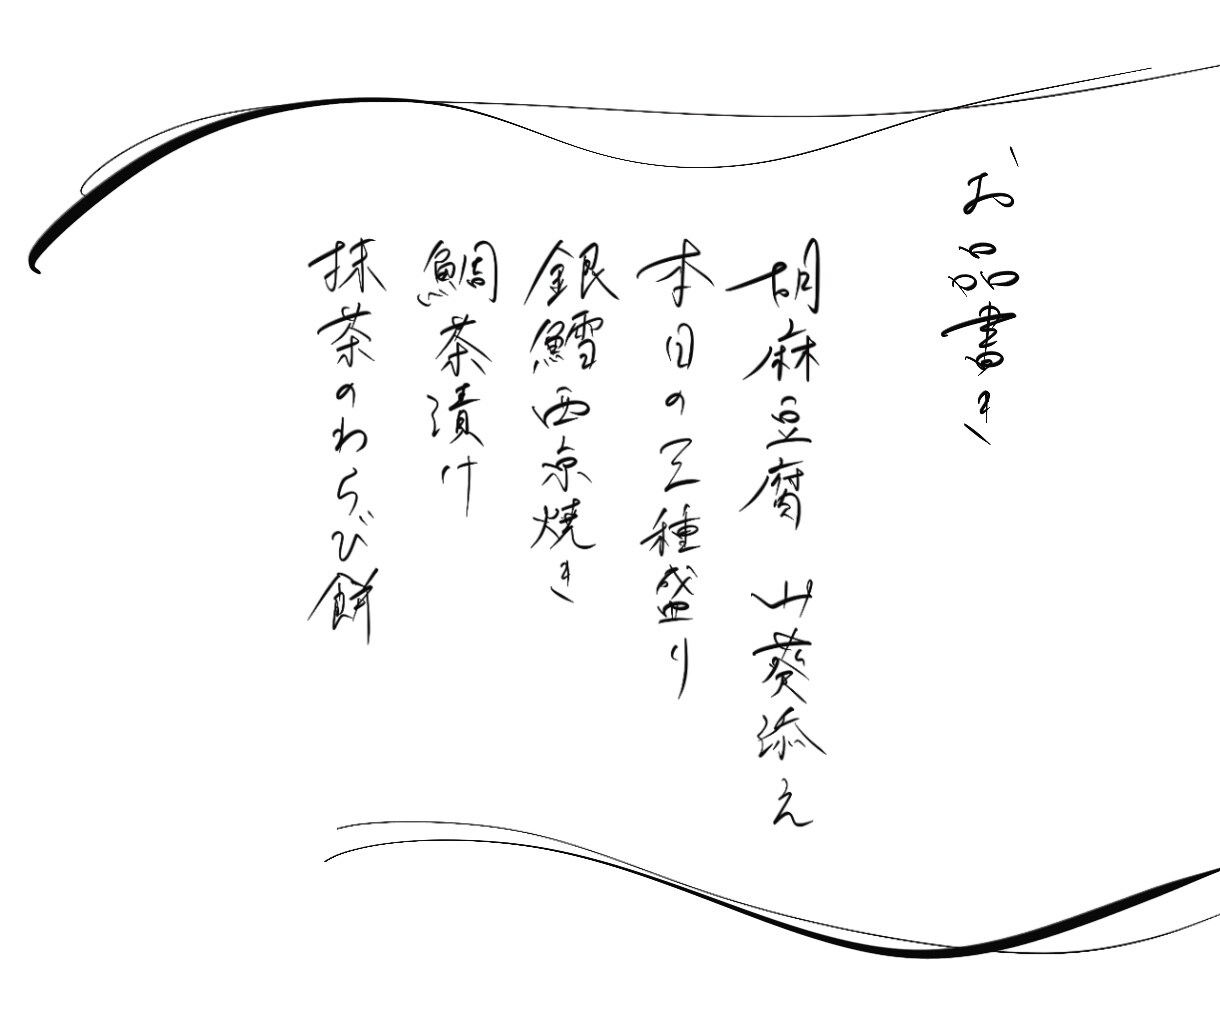 お品書き
胡麻豆腐　山葵添え
本日の三種盛り
銀鱈西京焼き
鯛茶漬け
抹茶のわらび餅